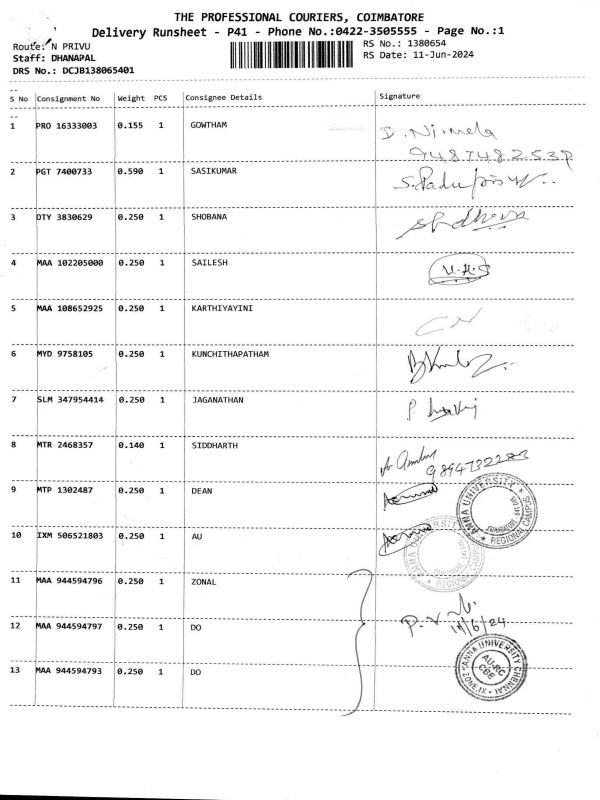 THE PROFESSIONAL COURIERS, COIMBATORE
Delivery Runsheet - P41 - Phone No.:0422-3505555 - Page No.:1
Route: N PRIVU
RS No.: 1380654
Staff: DHANAPAL
RS Date: 11-Jun-2024
DRS No.: DCJB138065401
S No Consignment No Weight PCS Consignee Details Signature
1 PRO 16333003 0.155 1 GOWTHAM
2 PGT 7400733 0.590 1 SASIKUMAR
3 OTY 3830629 0.250 1 SHOBANA
4 MAA 102205000 0.250 1 SAILESH
5 MAA 108652925 0.250 1 KARTHIYAYINI
6 MYD 9758105 0.250 1 KUNCHITHAPATHAM
7 SLM 347954414 0.250 1 JAGANATHAN
8 MTR 2468357 0.140 1 SIDDHARTH
9 MTP 1302487 0.250 1 DEAN
ANNA UNIVERSITY
REGIONAL CAMPUS
10 IXM 506521803 0.250 1 AU
11 MAA 944594796 0.250 1 ZONAL
12 MAA 944594797 0.250 1 DO
11/6/24
13 MAA 944594793 0.250 1 DO
ANNA UNIVERSITY CHENNAI
AU-RC
CBE
ZONE-IX